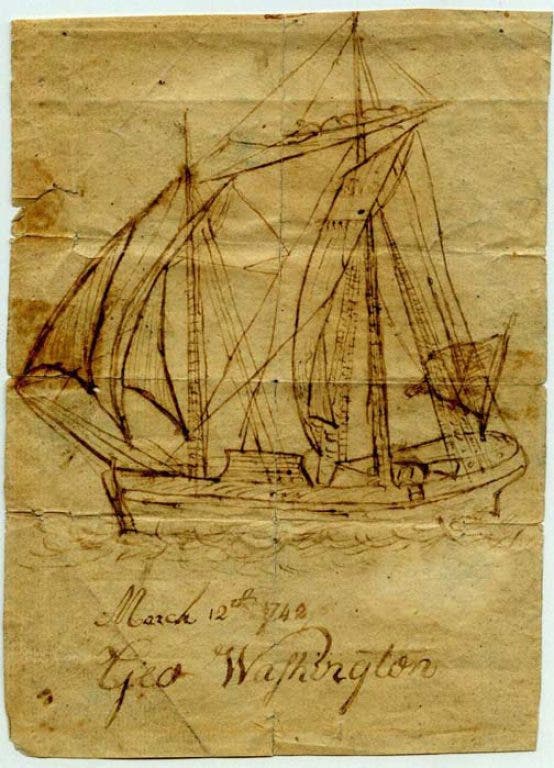 March 12th 1742
Geo Washington